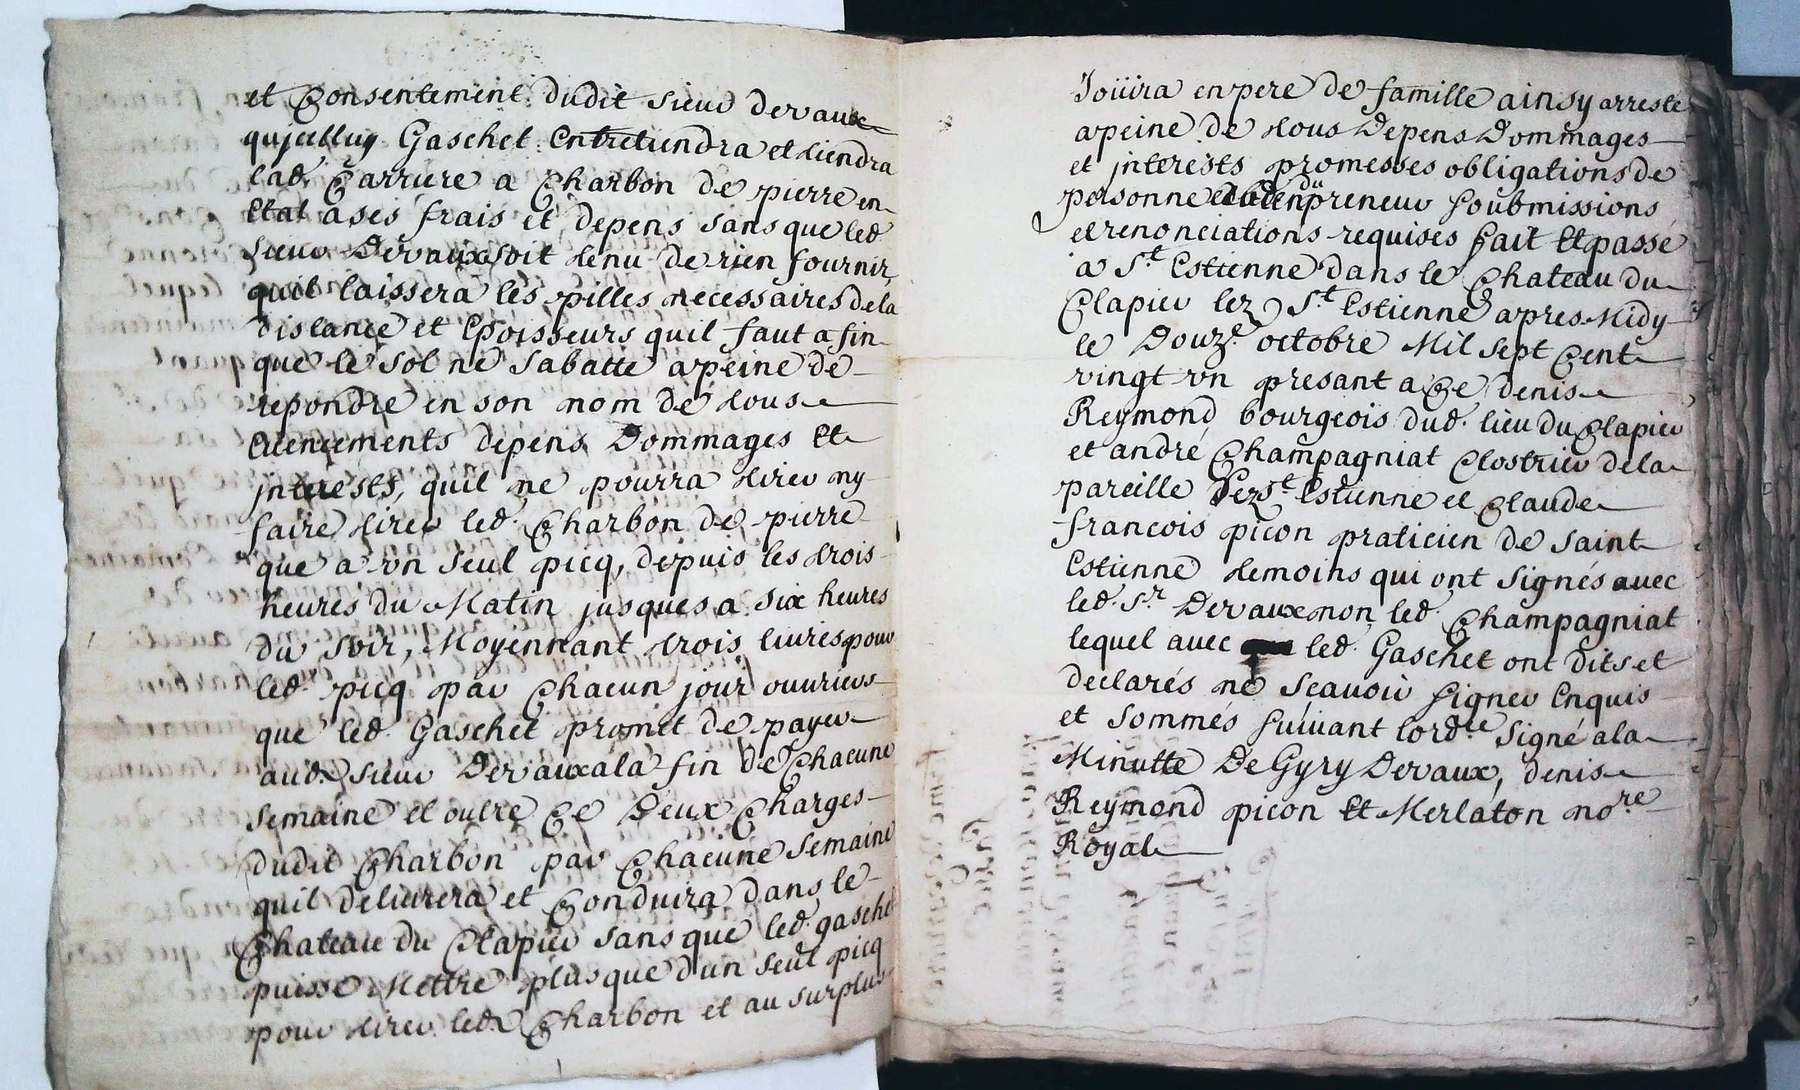 et Consentement dudit sieur dervaux
qujcelluy Gaschet Entretiendra et tiendra
lad. Carriere a Charbon de pierre en
Etat a ses frais et depens sans que led
sieur Dervaux soit tenu de rien fournir,
quil laissera les pilles necessaires de la
distance et Epoisseurs quil faut a fin
que le sol ne sabatte a peine de
repondre en son nom de tous
Evenements depens Dommages Et
jnterests, quil ne pourra tirer ny
faire tirer led. Charbon de pierre
que a vn seul picq, depuis les trois
heures du Matin jusques a six heures
du soir, Moyennant trois liures pour
led. picq par Chacun jour ouuriers
que led. Gaschet promet de payer
aud. sieur Dervaux a la fin de Chacune
semaine et outre Ce Deux Charges
dudit Charbon par Chacune semaine
quil deliurera et Conduira dans le
Chateau du Clapier sans que led. gaschet
puisse Mettre plus que d'un seul picq
pour tirer led. Charbon et au surplus
Joüira en pere de famille ainsy arresté
a peine de tous Depens Dommages
et jnterests promesses obligations de
personne du preneur soubmissions
et renonciations requises fait Et passé
a St. Estienne dans le Chateau du
Clapier lez St. Estienne apres Midy
le Douze. octobre Mil sept Cent
vingt vn presant a Ce denis
Reymond bourgeois dud. lieu du Clapier
et andré Champagniat Clostrier de la
pareille lez St. Estienne et Claude
francois picon praticien de saint
Estienne temoins qui ont signés auec
led. Sr. Dervaux non led. Champagniat
lequel avec led. Gaschet ont dits et
declarés ne sçauoir signer Enquis
et sommés suiuant lord.ce signé a la
Minutte De Gyry Dervaux, denis
Reymond picon Et Merlaton no.re
Royal